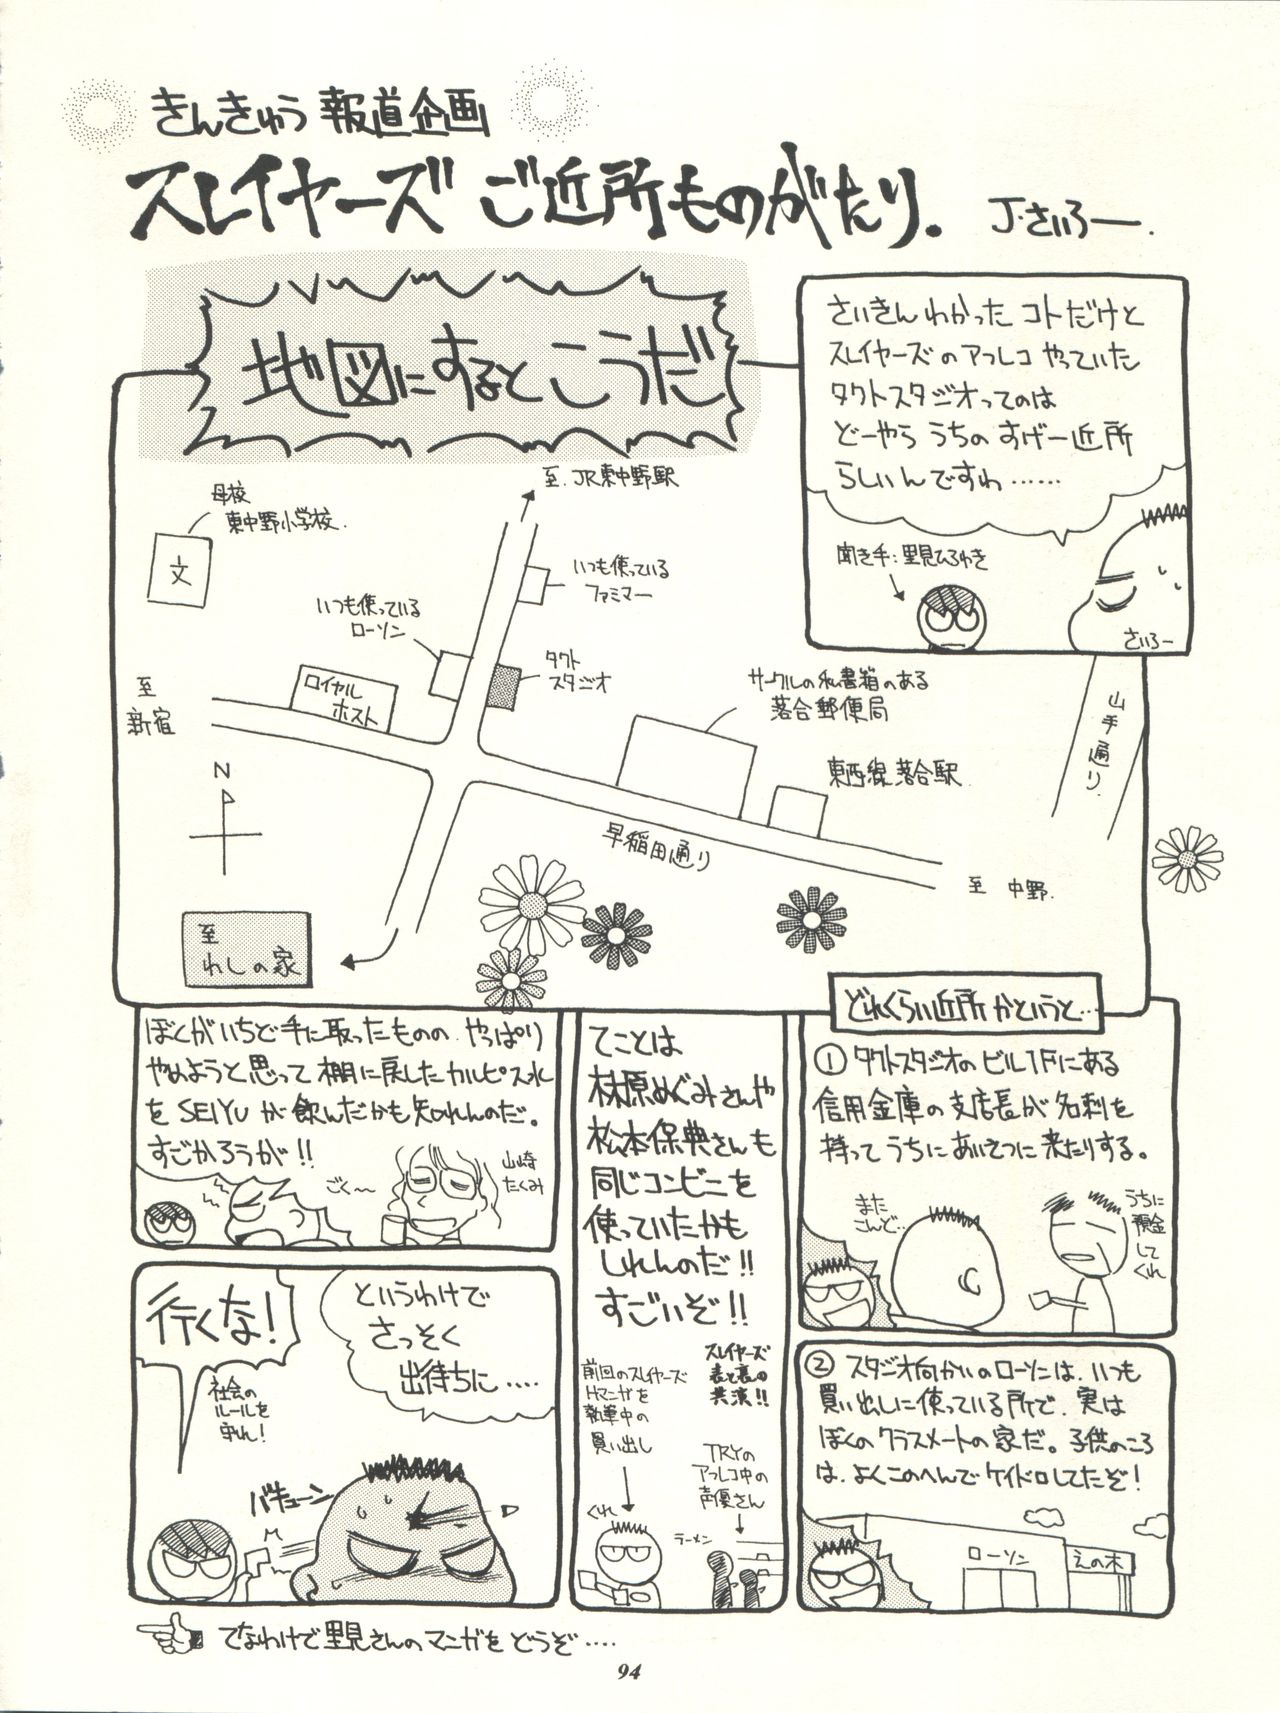 きんきゅう 報道企画
スレイヤーズ ご近所ものがたり。
J・さいろー.
さいきん わかった コトだけど
スレイヤーズ の アフレコ やっていた
タクトスタジオってのは
どーやら うちの すげー近所
らしいんですわ……
聞き手：里見ひろゆき
さいろー
地図にすると こうだ
至. JR東中野駅
母校
東中野小学校.
文
いつも使っている
ファミマー
いつも使っている
ローソン
タクト
スタジオ
ロイヤル
ホスト
至
新宿
サークルの私書箱のある
落合郵便局
東西線 落合駅
山手通り.
N
早稲田通り
至 中野.
至
わしの家
どれくらい近所 かというと…
① タクトスタジオの ビル1Fにある
信用金庫の支店長が名刺を
持って うちに あいさつに 来たりする。
また
こんど…
うちに
預金
して
くれ
② スタジオ向かいの ローソンは、いつも
買い出しに使っている所で、実は
ぼくの クラスメートの 家だ。子供のころ
は、よくこのへんで ケイドロしてたぞ！
ローソン
えの木
てことは
林原めぐみさんや
松本保典さんも
同じコンビニを
使っていたかも
しれんのだ!!
すごいぞ!!
スレイヤーズ
表と裏の
共演!!
前回のスレイヤーズ
Hマンガを
執筆中の
買い出し
TRYの
アフレコ中の
声優さん
くれ
ラーメン
ぼくが いちど 手に取ったものの やっぱり
やめようと思って 棚に戻した カルピス水
を SEIYU が 飲んだかも 知れんのだ。
すごかろうが!!
ごく〜
山崎
たくみ
というわけで
さっそく
出待ちに….
行くな！
社会の
ルールを
守れ！
バキューン
てなわけで 里見さんの マンガを どうぞ….
94